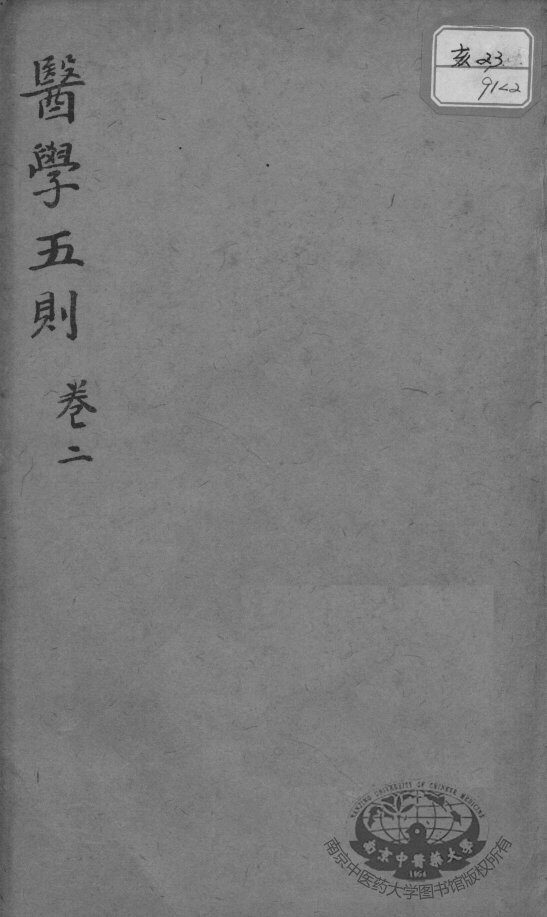 醫學五則
卷二
亥23
91<2
NANJING UNIVERSITY OF CHINESE MEDICINE
南京中醫藥大學
1954
南京中医药大学图书馆版权所有